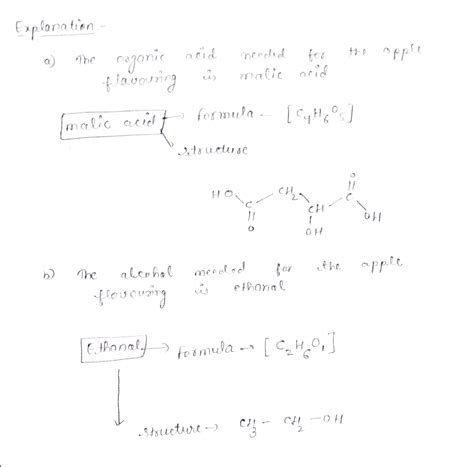 Explanation -
a) The organic acid needed for the apple
flavouring is malic acid
malic acid → formula - [C4H6O5]
structure
HO C CH2 CH C OH
O OH O
b) The alcohol needed for the apple
flavouring is ethanal
Ethanal → formula → [C2H6O1]
structure → CH3 - CH2 - OH